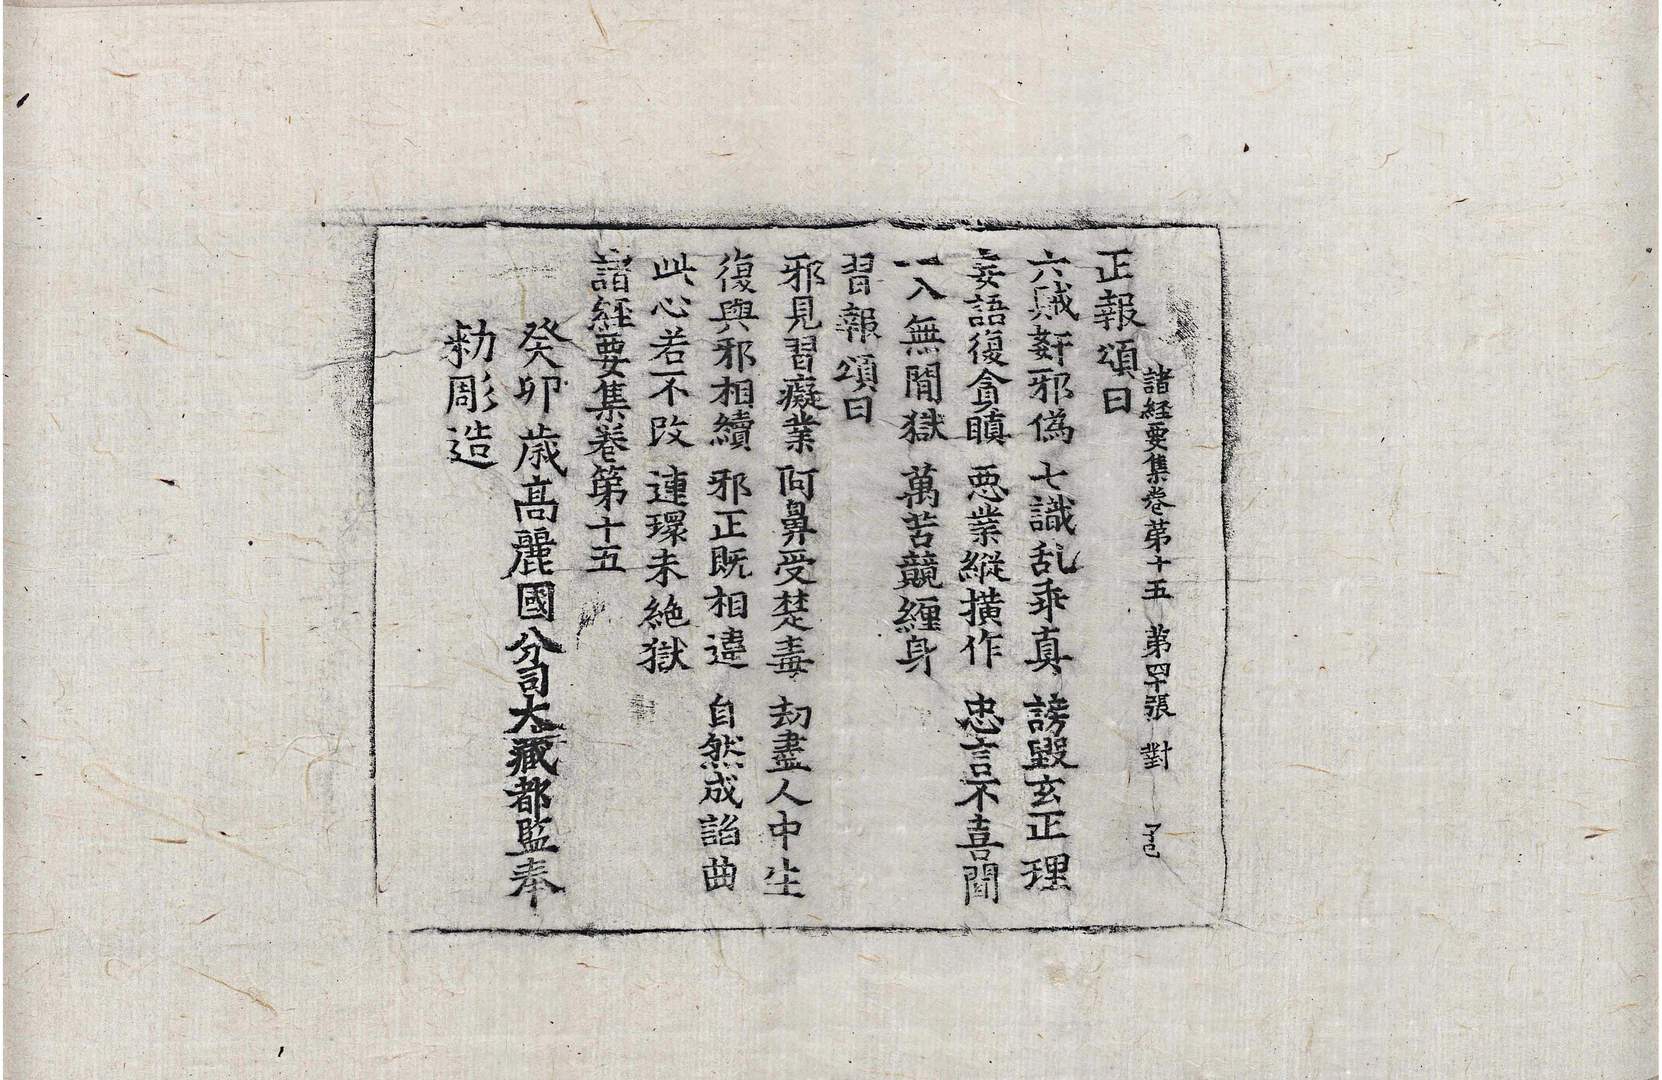 諸經要集卷第十五 第四十張 對 了已
正報頌曰
六賊姧邪僞 七識乱乖真 謗毁玄正理
妄語復貪瞋 惡業縱撗作 忠言不喜聞
一入無間獄 萬苦競纏身
習報頌曰
邪見習癡業 阿鼻受楚毒 劫盡人中生
復與邪相續 邪正旣相違 自然成諂曲
此心若不改 連環未絶獄
諸經要集卷第十五
癸卯歲高麗國分司大藏都監奉
勑彫造